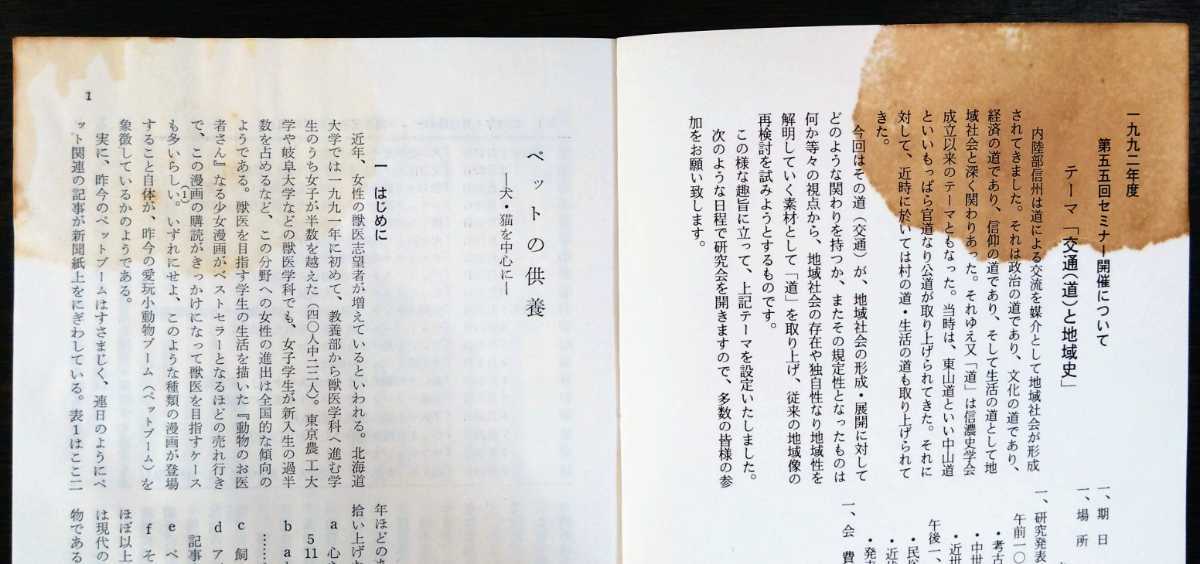 一九九二年度
第五五回セミナー開催について
テーマ「交通(道)と地域史」
内陸部信州は道による交流を媒介として地域社会が形成
されてきました。それは政治の道であり、文化の道であり、
経済の道であり、信仰の道であり、そして生活の道として地
域社会と深く関わりあった。それゆえ又「道」は信濃史学会
成立以来のテーマともなった。当時は、東山道といい中山道
といいもっぱら官道なり公道が取り上げられてきた。それに
対して、近時に於いては村の道・生活の道も取り上げられて
きた。
今回はその道(交通)が、地域社会の形成・展開に対して
どのような関わりを持つか、またその規定性となったものは
何か等々の視点から、地域社会の存在や独自性なり地域性を
解明していく素材として「道」を取り上げ、従来の地域像の
再検討を試みようとするものです。
この様な趣旨に立って、上記テーマを設定いたしました。
次のような日程で研究会を開きますので、多数の皆様の参
加をお願い致します。
一、期 日
一、場 所
一、研究発表
午前一〇
・考古
・中世
・近世
午後一、
・民俗
・近
・発表
一、会 費
ペットの供養
―犬・猫を中心に―
一 はじめに
近年、女性の獣医志望者が増えているといわれる。北海道
大学では一九九一年に初めて、教養部から獣医学科へ進む学
生のうち女子が半数を越えた(四〇人中二二人)。東京農工大
学や岐阜大学などの獣医学科でも、女子学生が新入生の過半
数を占めるなど、この分野への女性の進出は全国的な傾向の
ようである。獣医を目指す学生の生活を描いた『動物のお医
者さん』なる少女漫画がベストセラーとなるほどの売れ行き
で、この漫画の購読がきっかけになって獣医を目指すケース
も多いらしい。(1)いずれにせよ、このような種類の漫画が登場
すること自体が、昨今の愛玩小動物ブーム(ペットブーム)を
象徴しているかのようである。
実に、昨今のペットブームはすさまじく、連日のようにペ
ット関連の記事が新聞紙上をにぎわしている。表1はここ二
年ほどのあ
拾い上げた
a 心
511
b a
……
c 飼
d ア
記事
e ペ
f そ
ほぼ以上
は現代の
物である
1